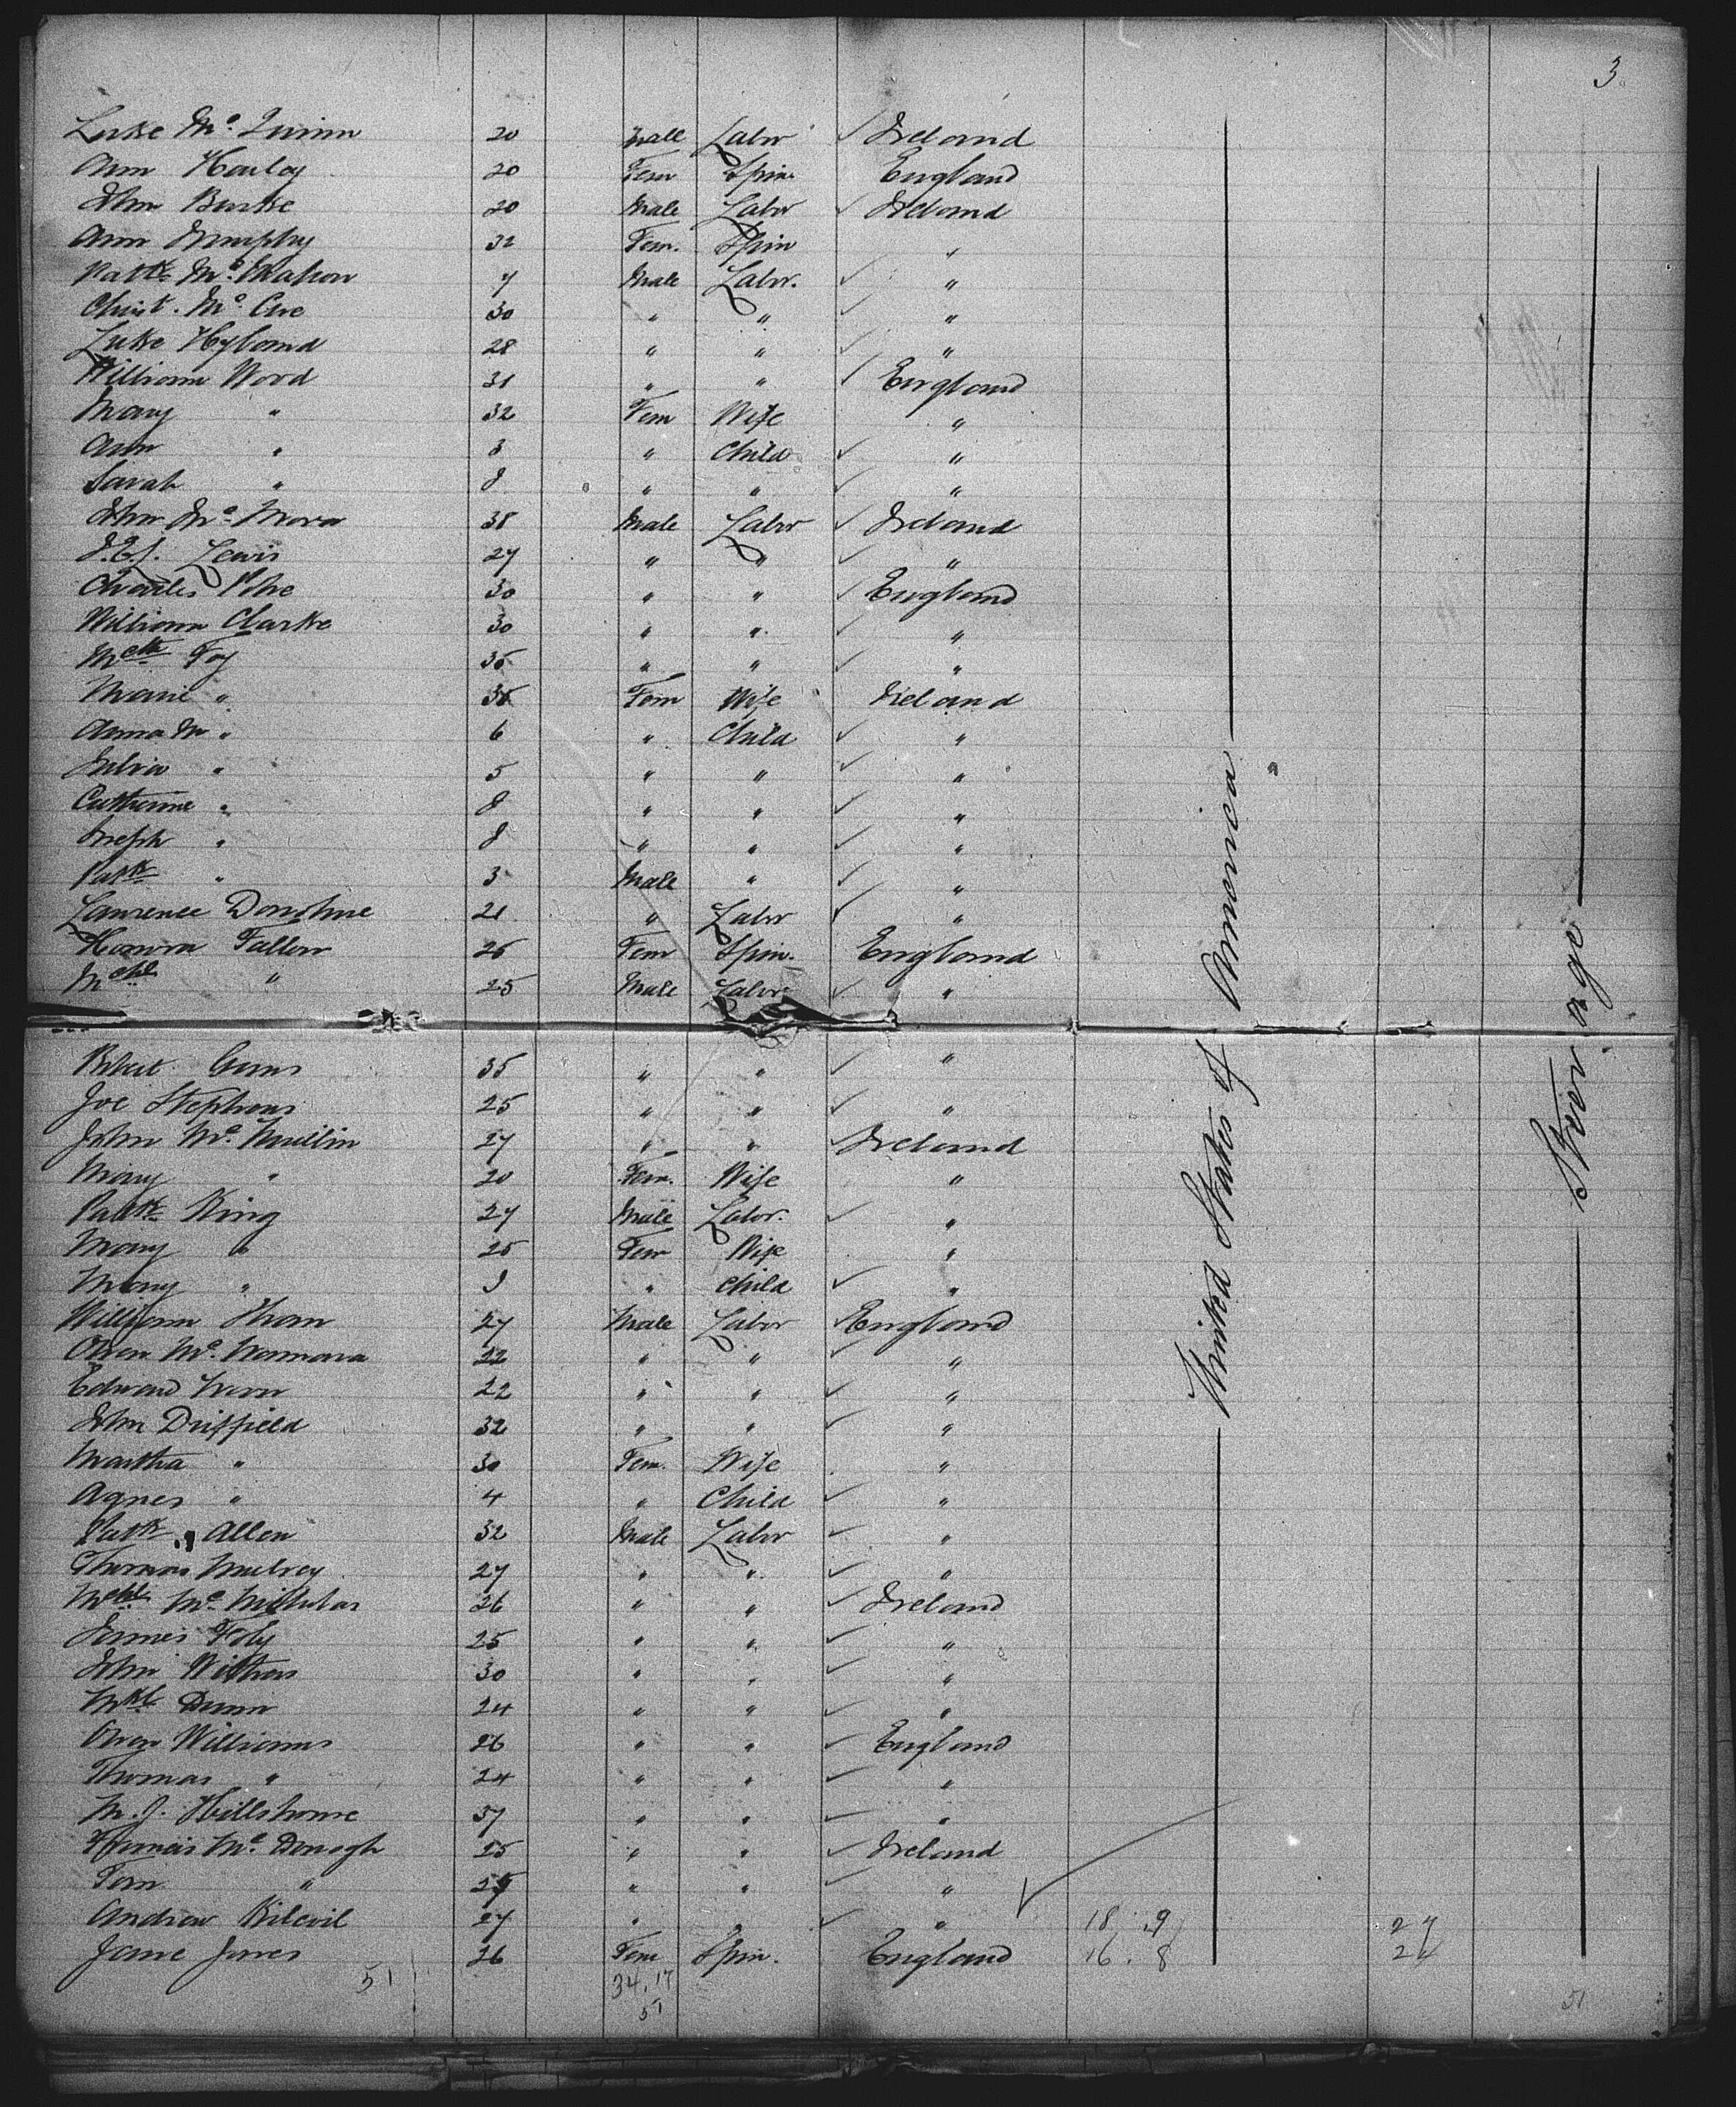 3
Luke Mc. Quinn 20 Male Labor ✓ Ireland
Ann Healey 20 Fem Spin. England
John Burke 20 Male Labor ✓ Ireland
Ann Murphy 32 Fem. Spin "
Patk. Mc. Mahon 7 Male Labor. ✓ "
Christ. Mc. Cue 30 " " ✓ "
Luke Hyland 28 " " ✓ "
William Wood 31 " " ✓ England
Mary " 32 Fem Wife "
Ann " 3 " Child ✓ "
Sarah " " " ✓ "
John Mc. 38 Male Labor ✓ Ireland
Lewis 27 " " ✓ "
Charles 30 " " ✓ England
William Clarke 30 " " ✓ "
Foy 35 " " ✓ "
Marie " 35 Fem Wife Ireland
Anna M " 6 " Child ✓ "
Julia " 5 " " ✓ "
Catherine " " " ✓ "
Joseph " " " ✓ "
Patk " 3 Male " ✓ "
Laurence Donohue 21 " Labor ✓ "
Honora Fallon 26 Fem Spin. England
Mchl " 25 Male Labor ✓ "
Robert 35 " " ✓ "
Joe Stephens 25 " " ✓ "
John Mc. Mullin 27 " " ✓ Ireland
Mary " 20 Fem. Wife "
Patk King 27 Male Labor. ✓ "
Mary " 25 Fem Wife "
Mary " " Child ✓ "
William 27 Male Labor ✓ England
Owen Mc. Namara 22 " " ✓ "
Edward 22 " " ✓ "
John Driffield 32 " " ✓ "
Martha " 30 Fem. Wife "
Agnes " 4 " Child ✓ "
Patk Allen 32 Male Labor ✓ "
Thomas Mulvey 27 " " ✓ "
Mchl Mc. Nicholas 26 " " ✓ Ireland
James Foly 25 " " ✓ "
John Withers 30 " " ✓ "
Mkl Dunn 24 " " ✓ "
Owen Williams 26 " " ✓ England
Thomas " 24 " " ✓ "
M. J. Hillshouse 37 " " ✓ "
Francis Mc Donogh 25 " " ✓ Ireland
Tom " " " ✓ "
Andrew Kilcvil 27 " " ✓ " 18 . 9 27
Jane Jones 26 Fem Spin. England 16 . 8 24
51 34. 17 51
51
United States of America
Steerage